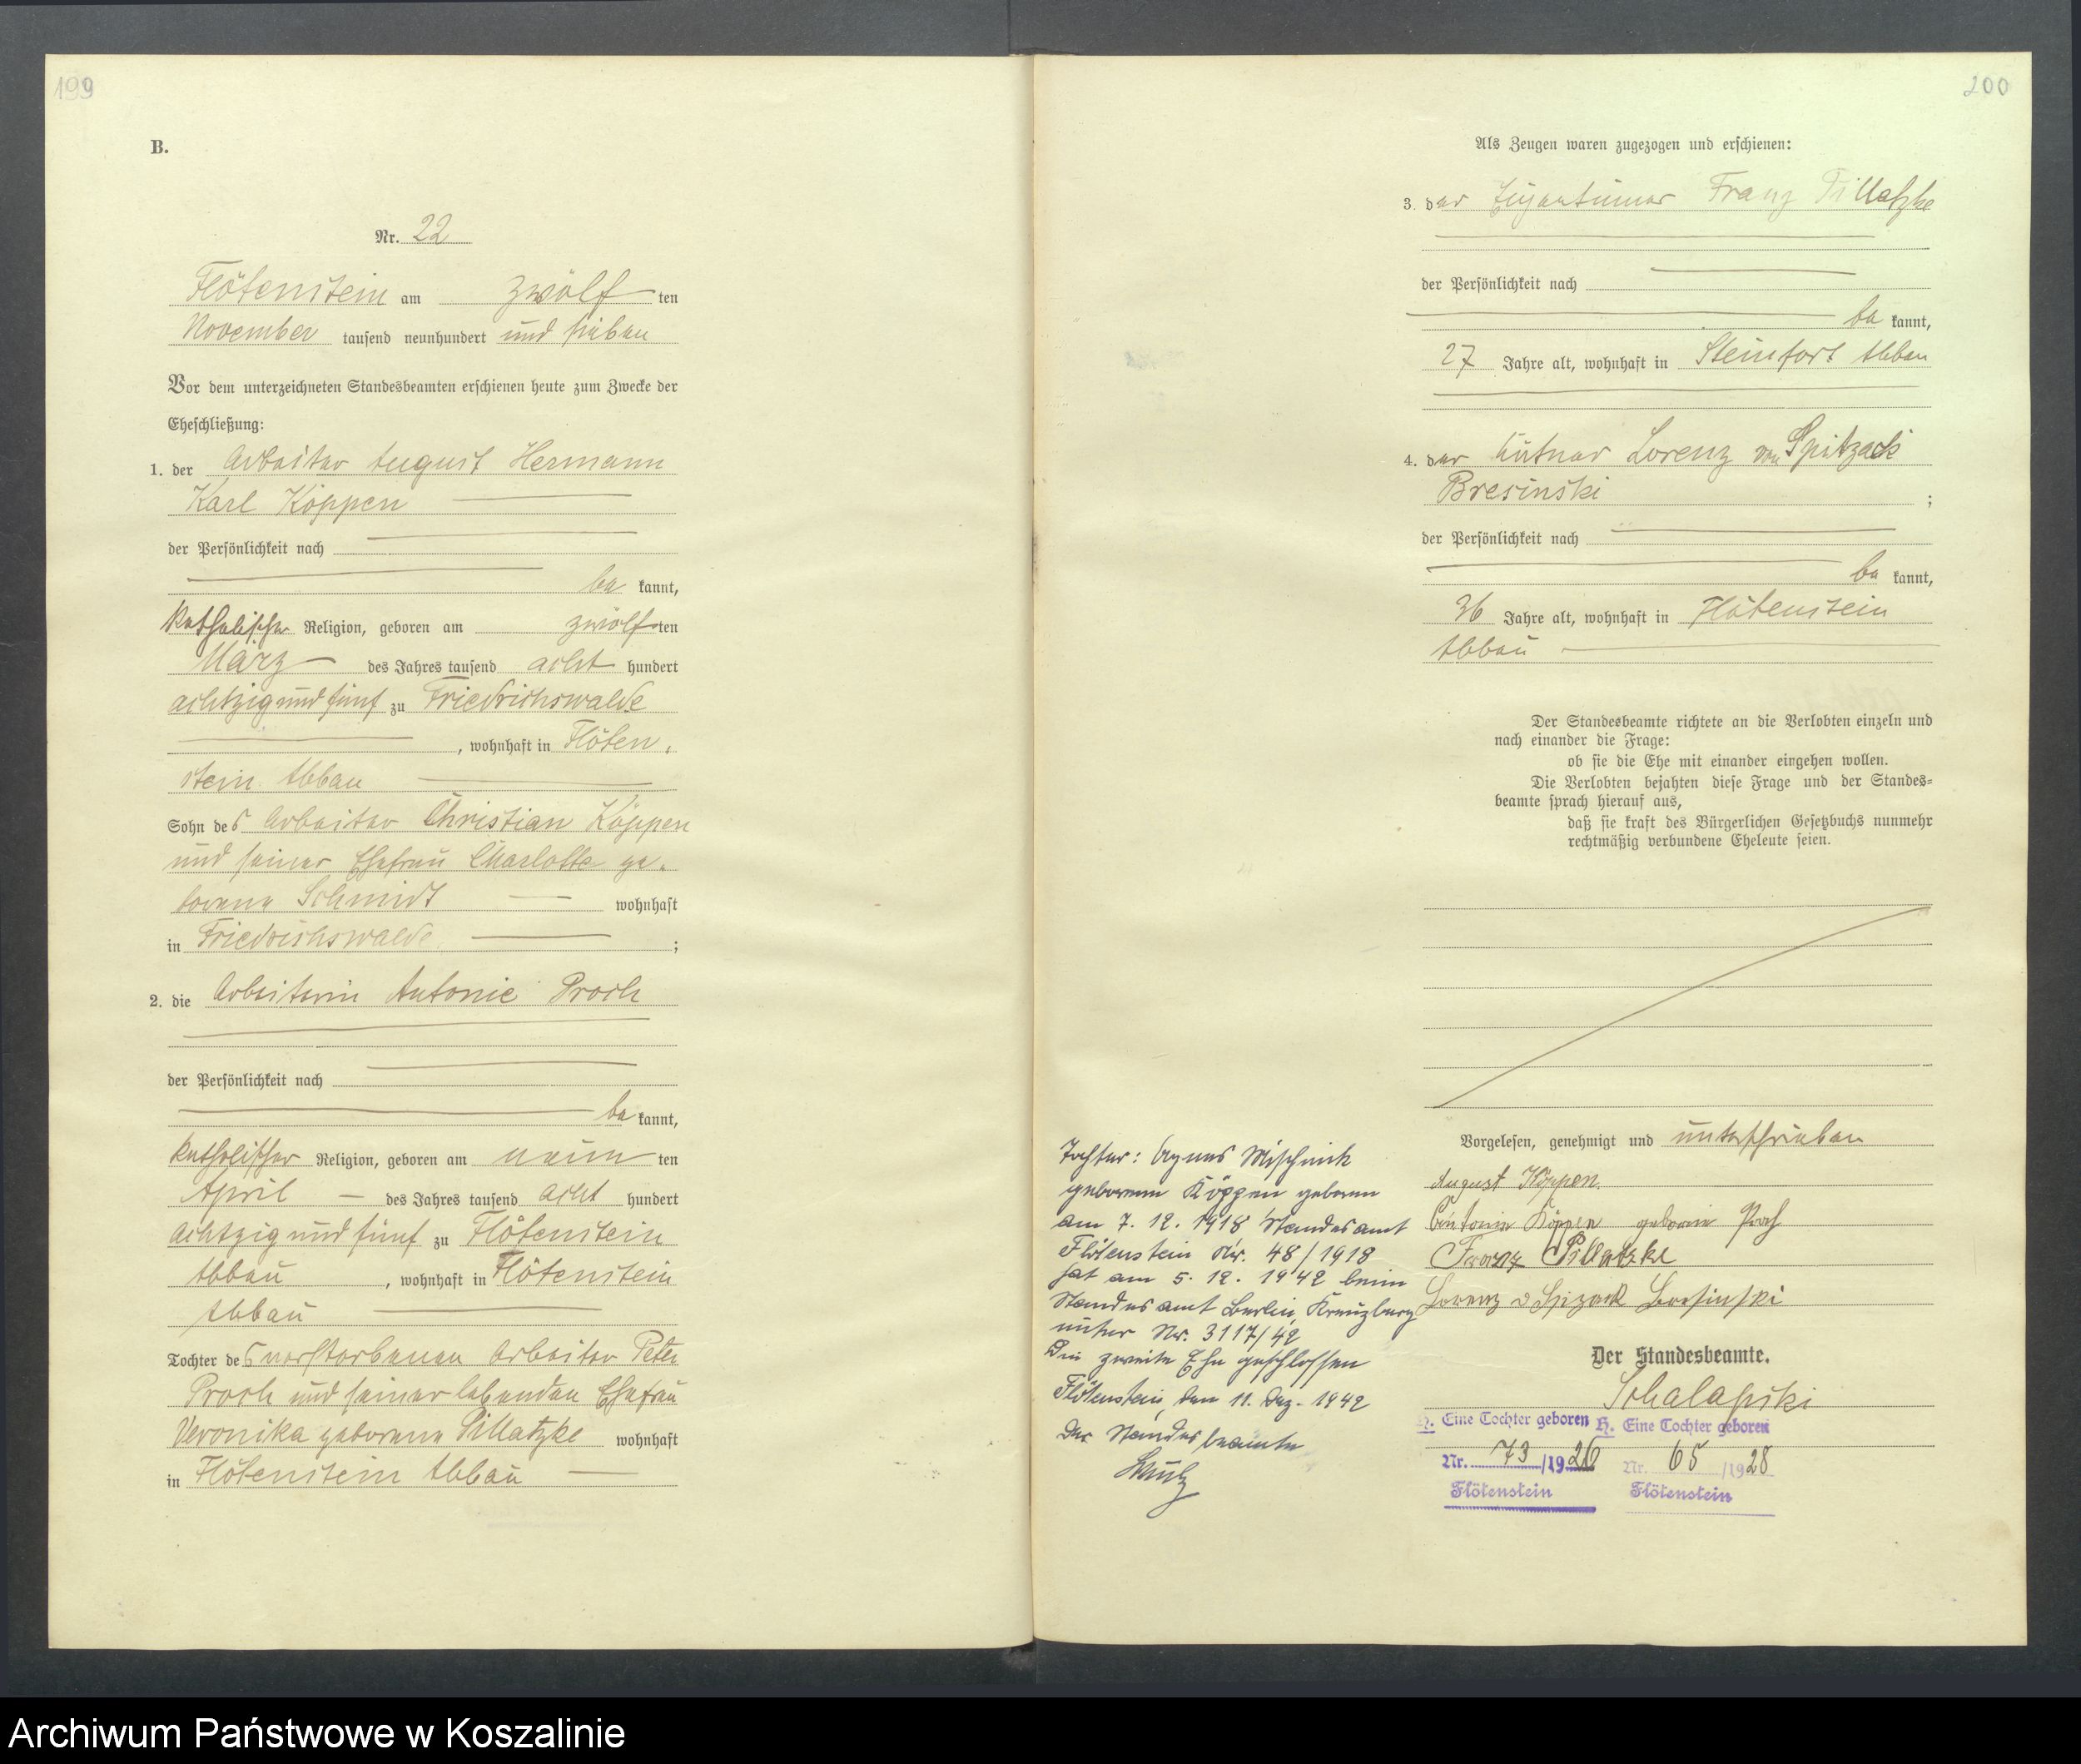 199
B.
Nr. 22
Flötenstein am zwölf ten
November tausend neunhundert und sieben
Vor dem unterzeichneten Standesbeamten erschienen heute zum Zwecke der
Eheschließung:
1. der Arbeiter August Hermann
Karl Köppen
der Persönlichkeit nach
be kannt,
katholischer Religion, geboren am zwölf ten
März des Jahres tausend acht hundert
achtzig und fünf zu Friedrichswalde
, wohnhaft in Flöten-
stein Abbau
Sohn des Arbeiter Christian Köppen
und seiner Ehefrau Charlotte ge-
borene Schmidt wohnhaft
in Friedrichswalde ;
2. die Arbeiterin Antonie Proch
der Persönlichkeit nach
be kannt,
katholischer Religion, geboren am neun ten
April des Jahres tausend acht hundert
achtzig und fünf zu Flötenstein
Abbau , wohnhaft in Flötenstein
Abbau
Tochter des verstorbenen Arbeiter Peter
Proch und seiner lebenden Ehefrau
Veronika geborene Pillatzke wohnhaft
in Flötenstein Abbau
200
Als Zeugen waren zugezogen und erschienen:
3. der Eigentümer Franz Pillatzke
der Persönlichkeit nach
be kannt,
27 Jahre alt, wohnhaft in Steinfort Abbau
4. der Lorenz von Spitzack
Bresinski ;
der Persönlichkeit nach
be kannt,
36 Jahre alt, wohnhaft in Flötenstein
Abbau
Der Standesbeamte richtete an die Verlobten einzeln und
nach einander die Frage:
ob sie die Ehe mit einander eingehen wollen.
Die Verlobten bejahten diese Frage und der Standes-
beamte sprach hierauf aus,
daß sie kraft des Bürgerlichen Gesetzbuchs nunmehr
rechtmäßig verbundene Eheleute seien.
Vorgelesen, genehmigt und unterschrieben
August Köppen.
Antonie Köppen geborene Proch
Franz Pillatzke
Lorenz v Spizack Bresinski
Der Standesbeamte.
Schalapski
H. Eine Tochter geboren
Nr. 73/1926
Flötenstein
H. Eine Tochter geboren
Nr. 65/1928
Flötenstein
Tochter: Agnes Mischnick
geborene Köppen geboren
am 7. 12. 1918 Standesamt
Flötenstein Nr. 48/1918
hat am 5. 12. 1942 beim
Standesamt Berlin, Kreuzburg
unter Nr. 3117/42
Die zweite Ehe geschlossen
Flötenstein, den 11. Dez. 1942
Der Standesbeamte
Archiwum Państwowe w Koszalinie